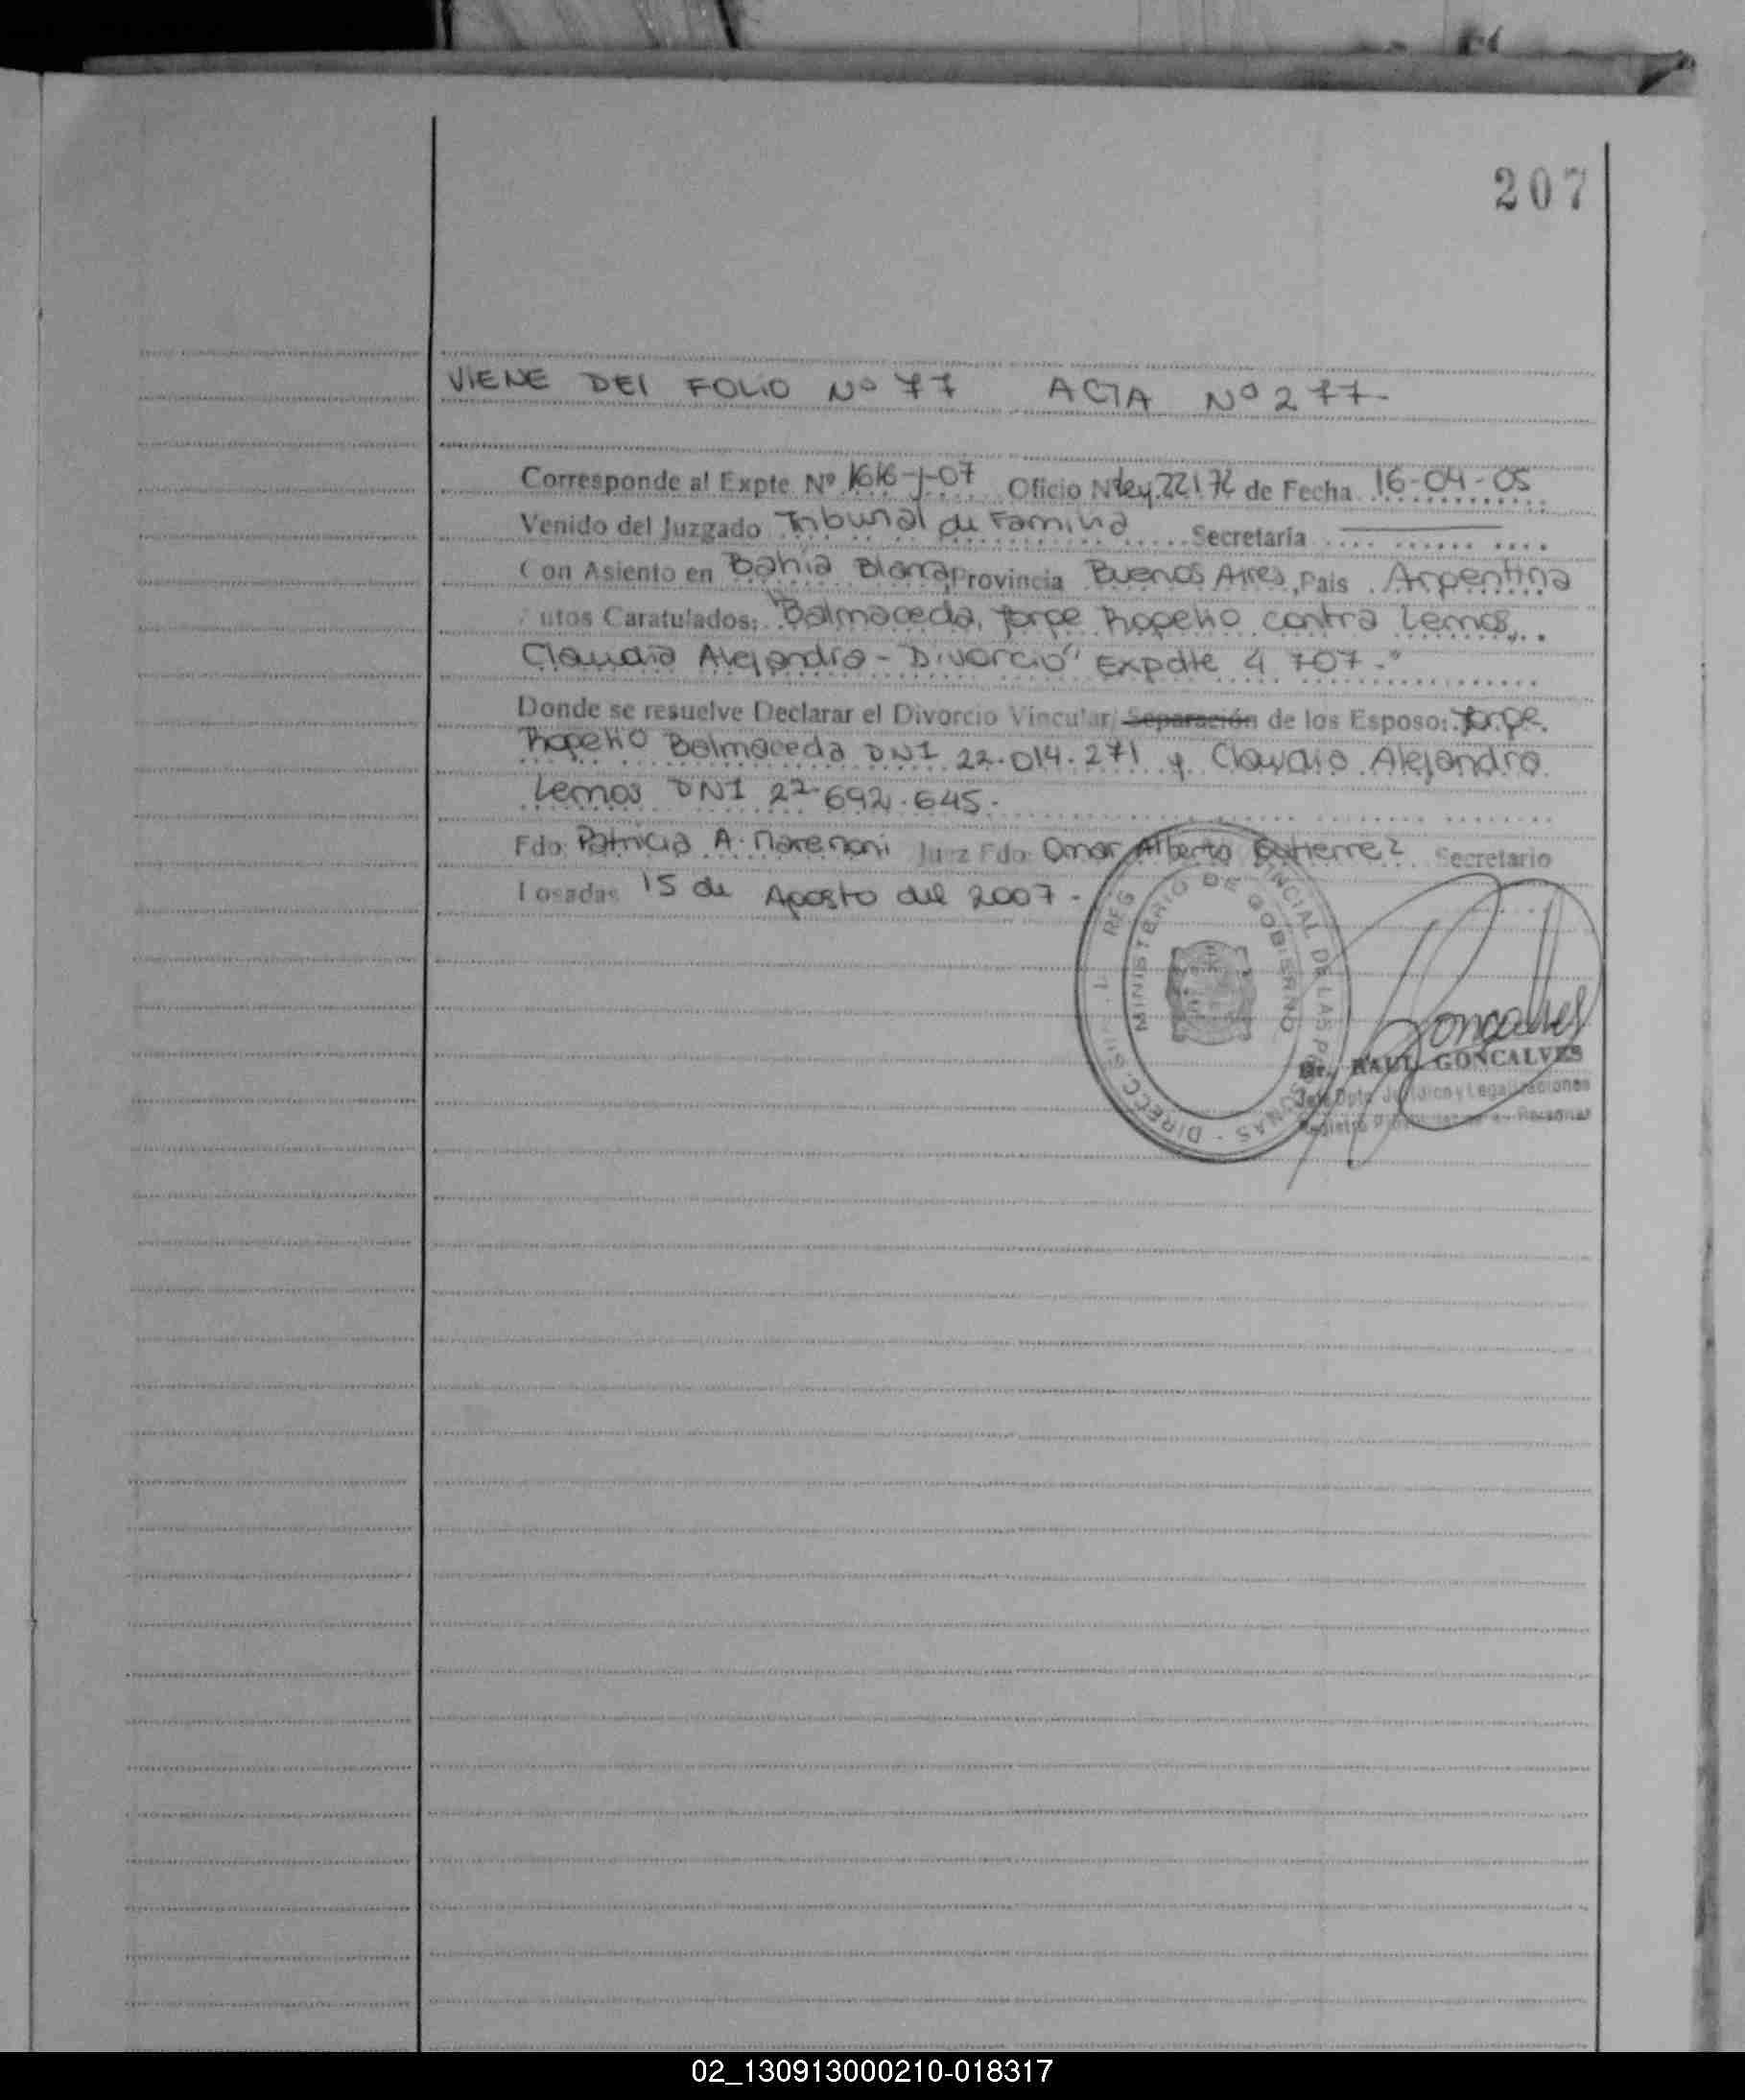 207
VIENE DEL FOLIO Nº 77 ACTA Nº 277-
Corresponde al Expte Nº 1616-J-07 Oficio Nº Ley 22172 de Fecha 16-04-05
Venido del Juzgado Tribunal de Familia Secretaría
Con Asiento en Bahía Blanca Provincia Buenos Aires, Pais Argentina
utos Caratulados: "Balmaceda, Jorge Rogelio contra Lemos,
Claudia Alejandra - Divorcio" Expdte 4 707-"
Donde se resuelve Declarar el Divorcio Vincular/ Separación de los Esposo: Jorge
Rogelio Balmaceda DNI 22.014.271 y Claudia Alejandra
Lemos DNI 22.692.645.
Fdo: Patricia A. Marenoni Juez Fdo Omar Alberto Gutierrez Secretario
Posadas 15 de Agosto del 2007-
MINISTERIO DE GOBIERNO
Goncalves
Dr. RAUL GONCALVES
Jefe Dpto Jurídico y Legalizaciones
02_130913000210-018317